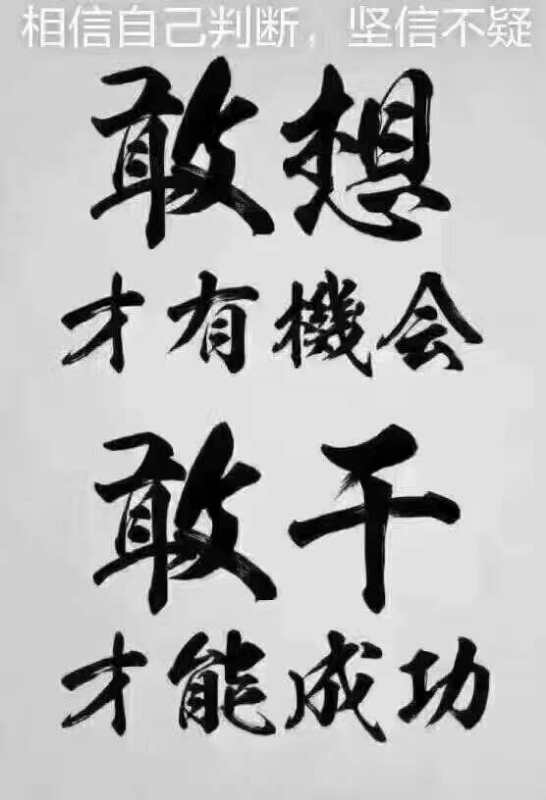 相信自己判断，坚信不疑
敢想
才有機会
敢干
才能成功